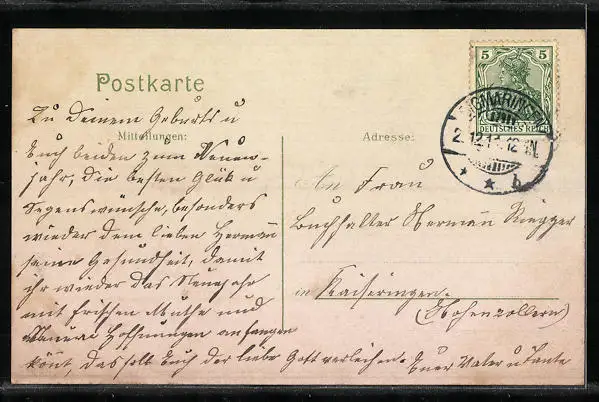 Postkarte
Mitteilungen:
Zu Deinem Geburts u
Euch beiden zum Neuen-
jahr, die besten Glück u
Segenswünsche, besonders
wieder dem lieben Hermann
seine Gesundheit, damit
ihr wieder das Neuejahr
mit frischen Muthe und
Neuen Hoffnungen anfangen
könnt, das soll Euch der liebe Gott verleihen.
Euer Vater u Tante
Adresse:
An Frau
Buchhalter Hermann
in Kaiseringen.
(Hohenzollern)
5 5
DEUTSCHES REICH
SIGMARINGEN
2.12.1 12
* * b